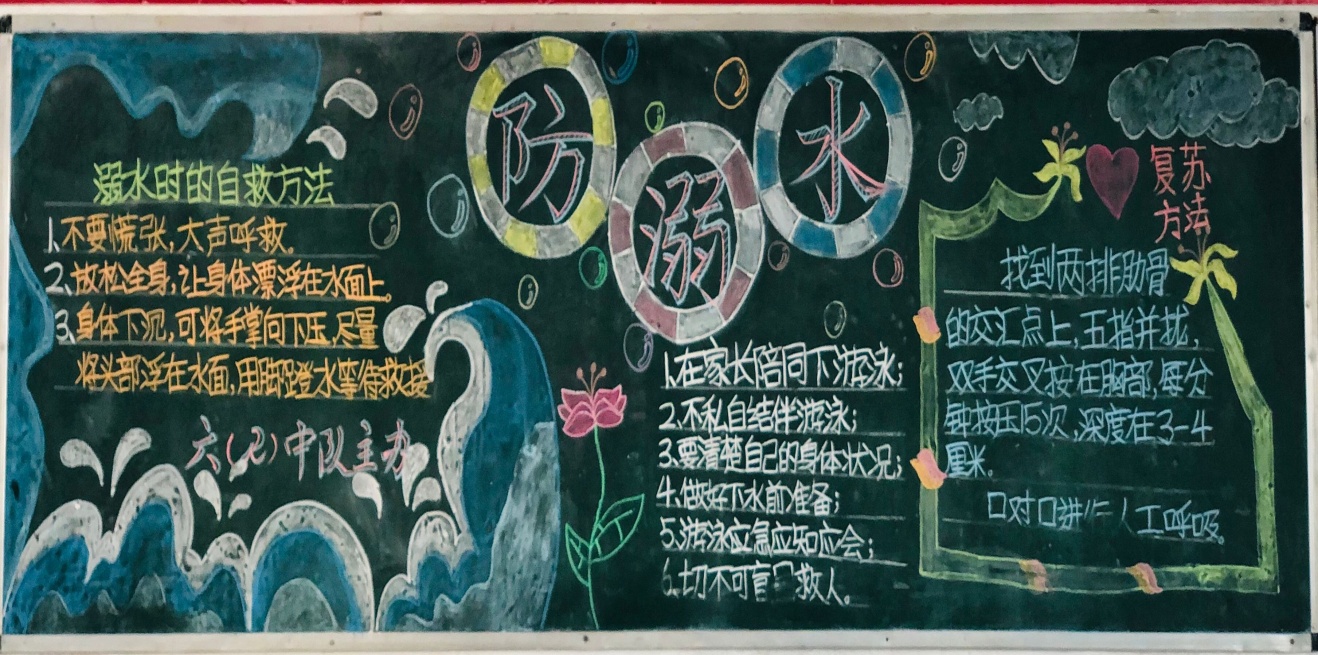 防溺水
溺水时的自救方法
1、不要慌张,大声呼救。
2、放松全身,让身体漂浮在水面上。
3、身体下沉,可将手掌向下压,尽量
将头部浮在水面,用脚蹬水等待救援
六(7)中队主办
1、在家长陪同下游泳;
2、不私自结伴游泳;
3、要清楚自己的身体状况;
4、做好下水前准备;
5、游泳应急应知应会;
6、切不可盲 救人。
复苏
方法
找到两排肋骨
的交汇点上,五指并拢,
双手交叉按在胸部,每分
钟按压15次,深度在3-4
厘米。
口对口进行人工呼吸。